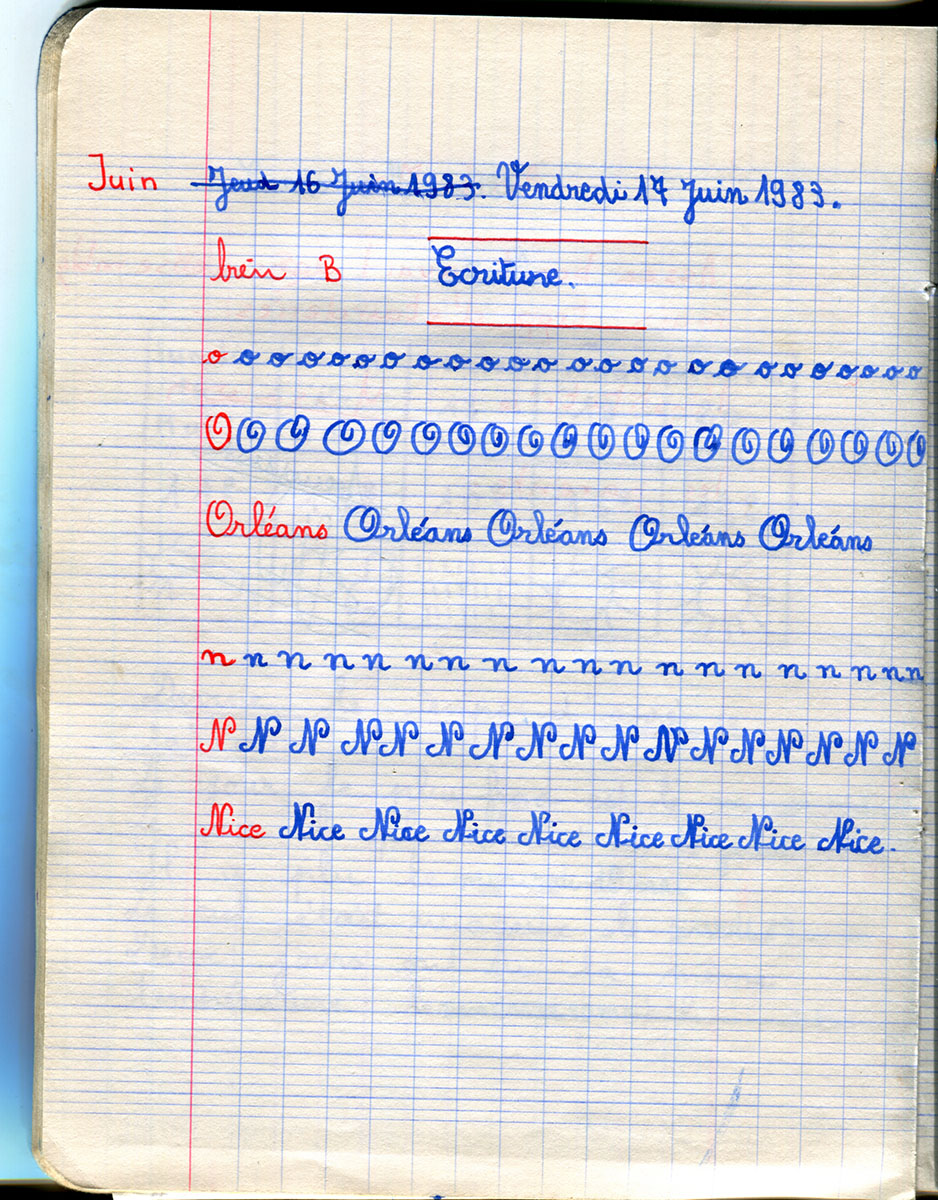 Juin Jeudi 16 Juin 1983. Vendredi 17 Juin 1983.
bien B Ecriture.
o o o o o o o o o o o o o o o o o o o o o o o o o
O O O O O O O O O O O O O O O O O O O O
Orléans Orléans Orléans Orléans Orléans
n n n n n n n n n n n n n n n n n n n
N N N N N N N N N N N N N N N N N
Nice Nice Nice Nice Nice Nice Nice Nice Nice.